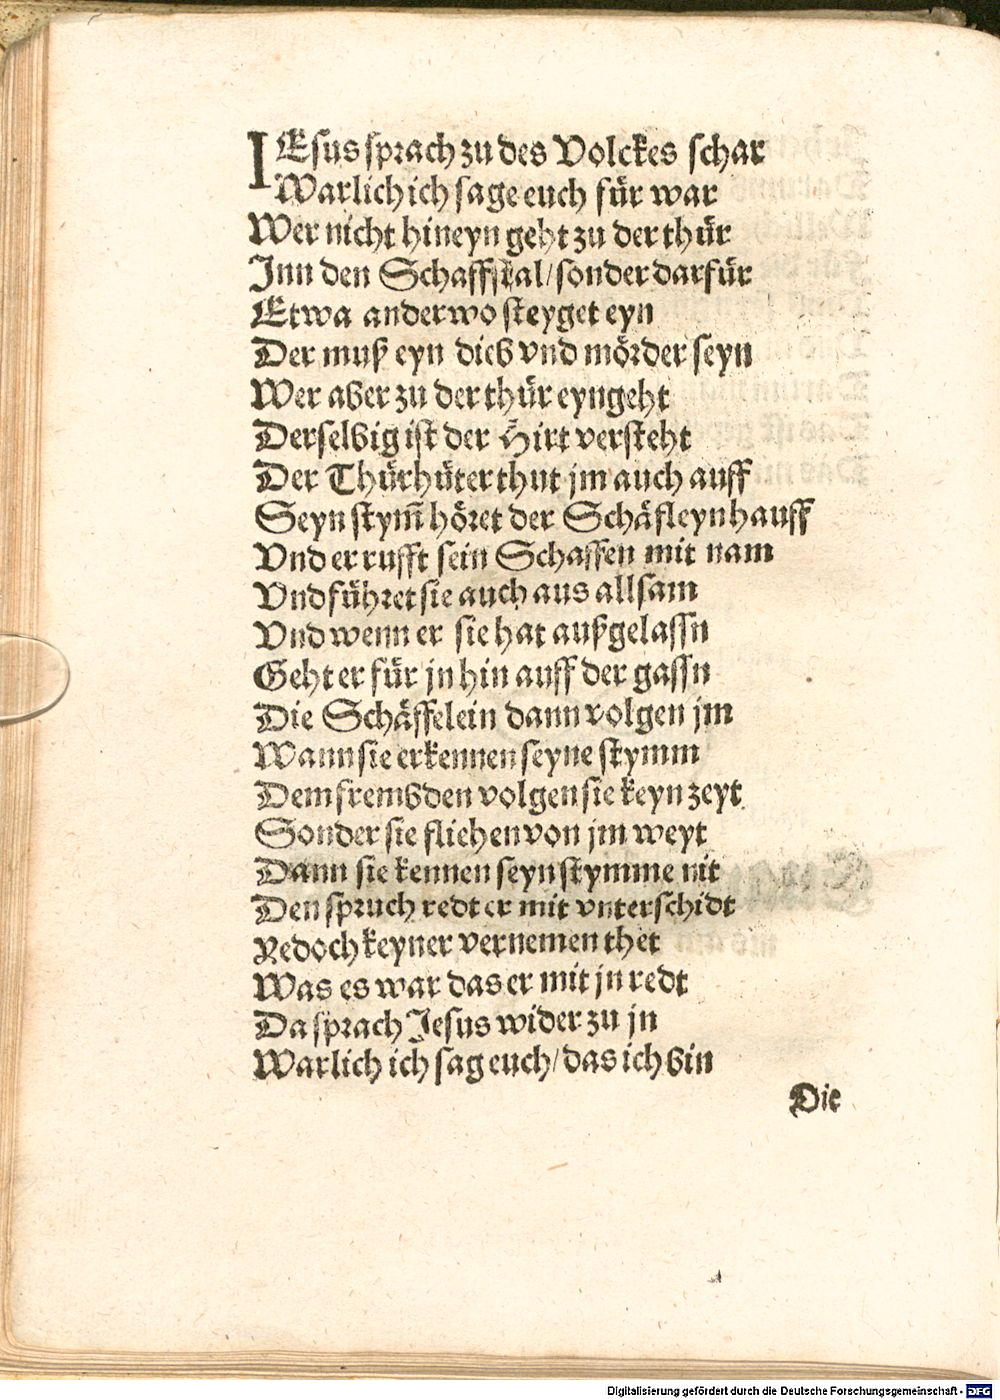 IEsus sprach zu des Volckes schar
Warlich ich sage euch für war
Wer nicht hineyn geht zu der thür
Inn den Schaffstal/sonder darfür
Etwa anderwo steyget eyn
Der muß eyn dieb vnd mörder seyn
Wer aber zu der thür eyngeht
Derselbig ist der Hirt versteht
Der Thürhüter thut jm auch auff
Seyn stym̃ höret der Schäfleyn hauff
Vnd er rufft sein Schaffen mit nam
Vnd führet sie auch aus allsam
Vnd wenn er sie hat außgelassn
Geht er für jn hin auff der gassn
Die Schäffelein dann volgen jm
Wann sie erkennen seyne stymm
Dem frembden volgen sie keyn zeyt
Sonder sie fliehen von jm weyt
Dann sie kennen seyn stymme nit
Den spruch redt er mit vnterschidt
Yedoch keyner vernemen thet
Was es war das er mit jn redt
Da sprach Jesus wider zu jn
Warlich ich sag euch/das ich bin
Die
Digitalisierung gefördert durch die Deutsche Forschungsgemeinschaft - DFG